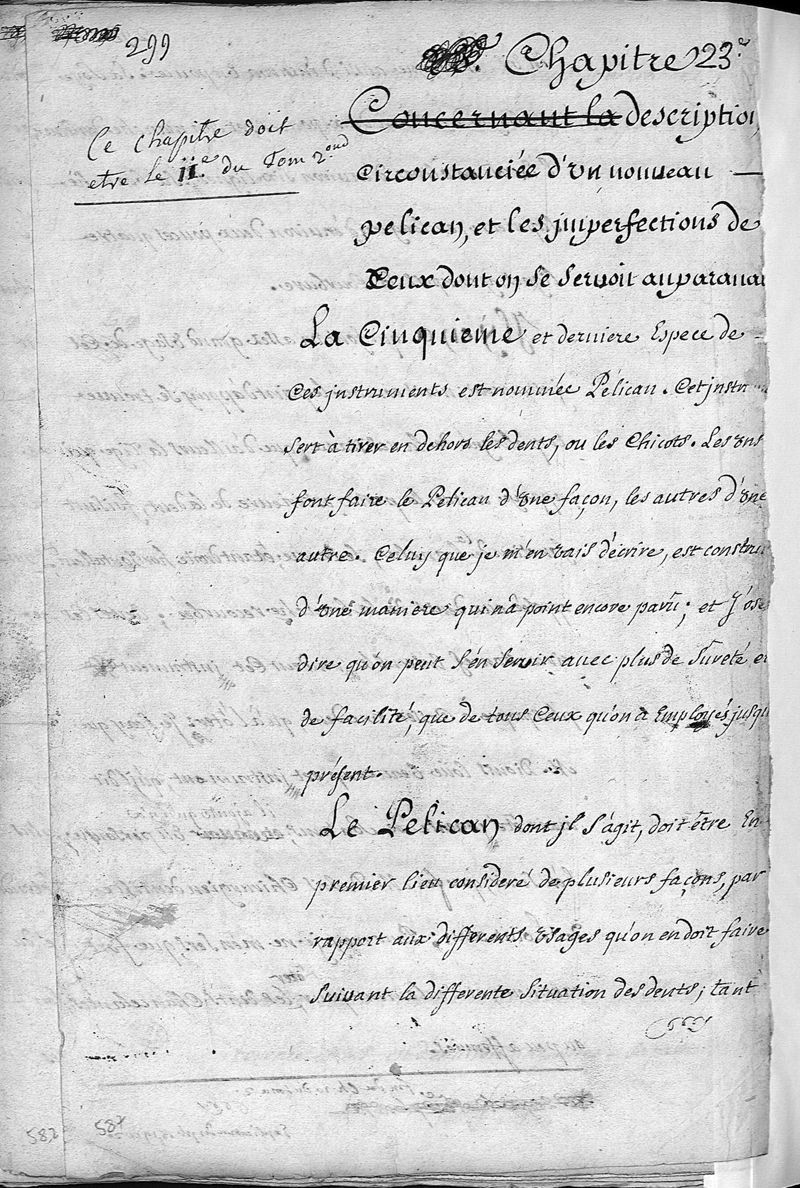 299
Chapitre 23.e
Ce chapitre doit
etre le 11.e du Tom 2.ond
Concernant la description
circonstanciée d'un nouveau
pelican, et les jmperfections de
Ceux dont on se servoit auparavan
La Cinquieme et derniere Espece de
Ces jnstruments est nommée Pélican. Cet jnstr
sert à tirer en dehors les dents, ou les Chicots. Les uns
font faire le Pelican d'une façon, les autres d'une
autre. Celuy que je m'en vais décrire, est constru
d'une maniere qui n'a point encore parû; et J'ose
dire qu'on peut s'en servir avec plus de sûreté et
de facilité, que de tous Ceux qu'on a Employés jusqu
présent.
Le Pelican dont jl s'agit, doit être En
premier lieu consideré de plusieurs façons, par
rapport aux differents usages qu'on en doit faire
suivant la differente situation des dents; tant
587
582